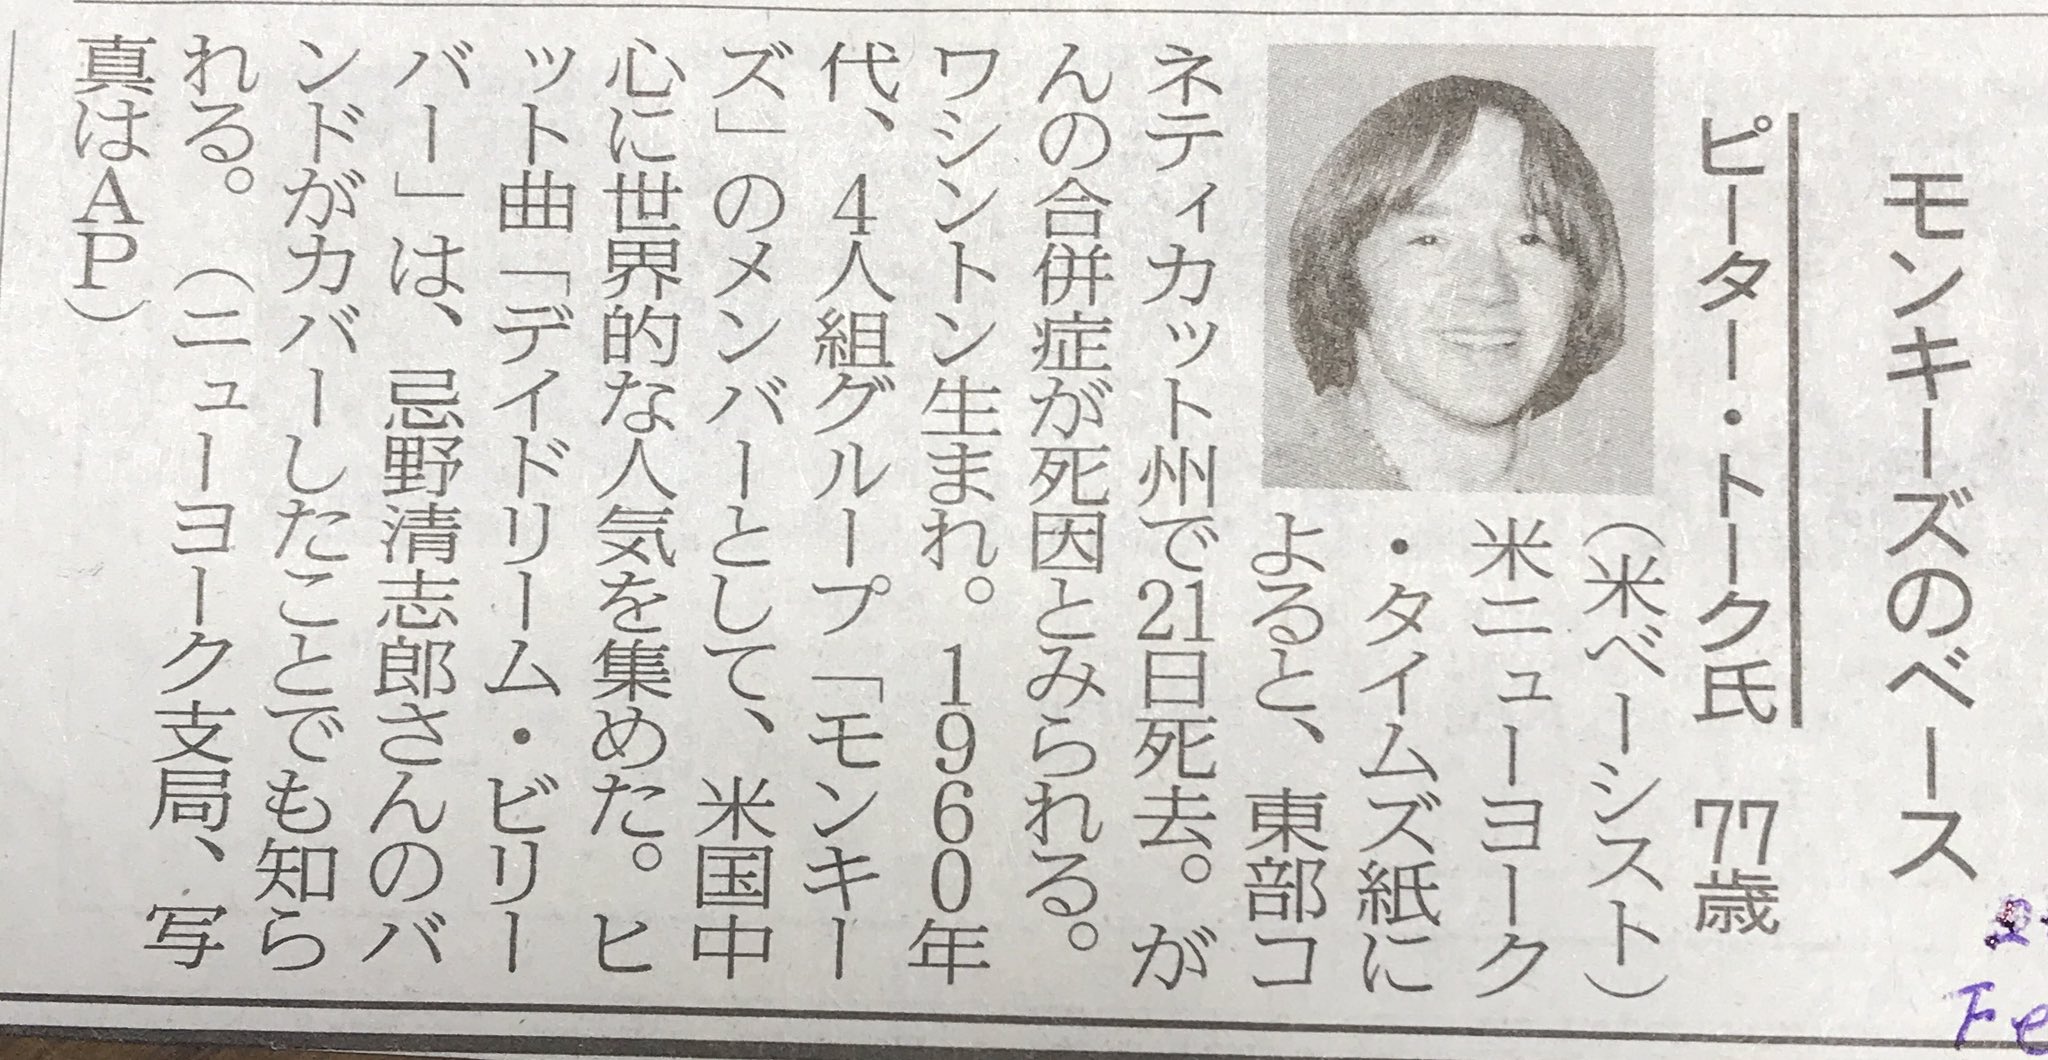 モンキーズのベース
ピーター・トーク氏 77歳
（米ベーシスト）
米ニューヨーク
・タイムズ紙に
よると、東部コ
ネティカット州で21日死去。が
んの合併症が死因とみられる。
ワシントン生まれ。1960年
代、4人組グループ「モンキー
ズ」のメンバーとして、米国中
心に世界的な人気を集めた。ヒ
ット曲「デイドリーム・ビリー
バー」は、忌野清志郎さんのバ
ンドがカバーしたことでも知ら
れる。（ニューヨーク支局、写
真はAP）
Fe